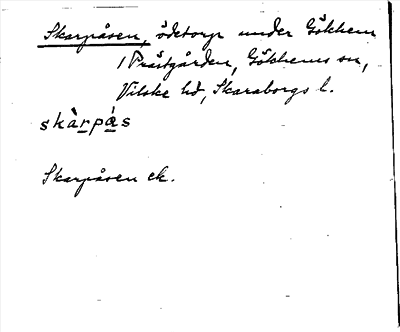 Skarpåsen, ödetorp under Gökhem
1 Prästgården, Gökhems sn,
Vilske hd, Skaraborgs l.
skàrpás
Skarpåsen ek.